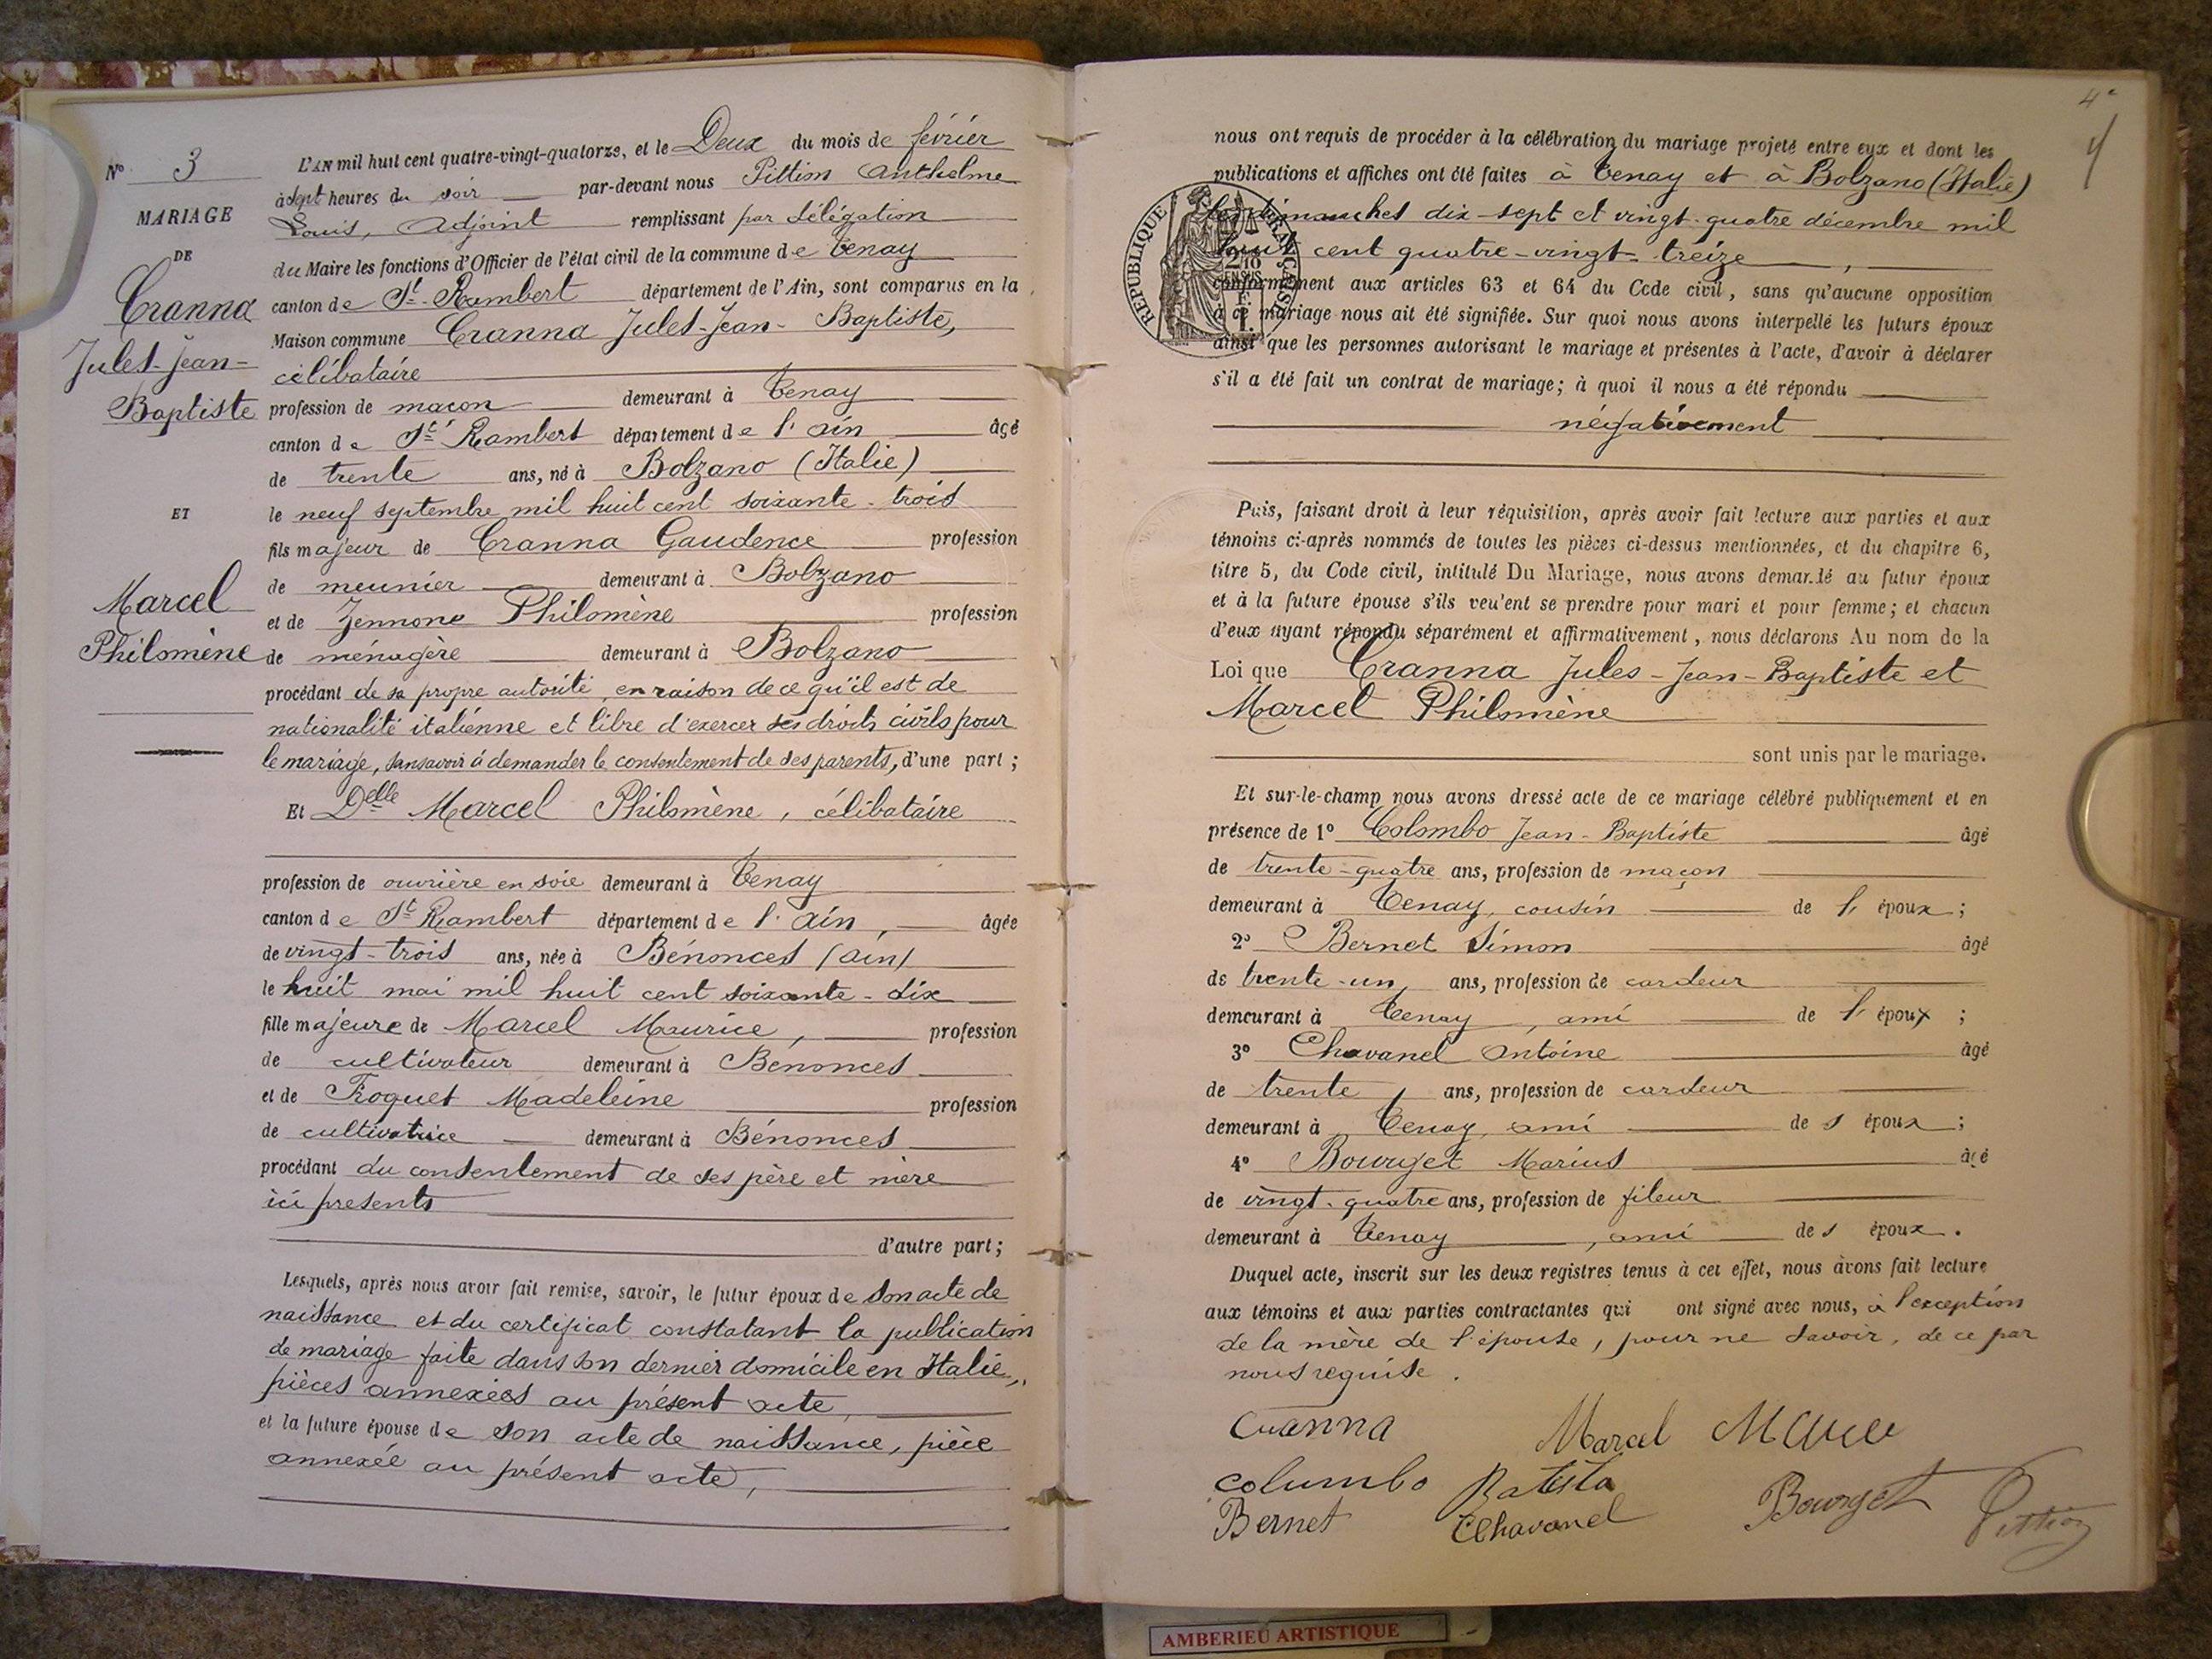 N° 3
MARIAGE
DE
Cranna
Jules-Jean-
Baptiste
ET
Marcel
Philomène
L'AN mil huit cent quatre-vingt-quatorze, et le Deux du mois de février
à sept heures du soir par-devant nous Pittion Anthelme
Louis, Adjoint remplissant par délégation
du Maire les fonctions d'Officier de l'état civil de la commune de Tenay
canton de St-Rambert département de l'Ain, sont comparus en la
Maison commune Cranna Jules-Jean-Baptiste,
célibataire
profession de maçon demeurant à Tenay
canton de St Rambert département de l'ain âgé
de trente ans, né à Bolzano (Italie)
le neuf septembre mil huit cent soixante-trois
fils majeur de Cranna Gaudence profession
de meunier demeurant à Bolzano
et de Zennone Philomène profession
de ménagère demeurant à Bolzano
procédant de sa propre autorité, en raison de ce qu'il est de
nationalité italienne et libre d'exercer ses droits civils pour
le mariage, sans avoir à demander le consentement de ses parents, d'une part;
Et Delle Marcel Philomène, célibataire
profession de ouvrière en soie demeurant à Tenay
canton de St Rambert département de l'ain, âgée
de vingt-trois ans, née à Bénonces (ain)
le huit mai mil huit cent soixante-dix
fille majeure de Marcel Maurice, profession
de cultivateur demeurant à Bénonces
et de Froquet Madeleine profession
de cultivatrice demeurant à Bénonces
procédant du consentement de ses père et mère
ici presents
d'autre part;
Lesquels, après nous avoir fait remise, savoir, le futur époux de son acte de
naissance et du certificat constatant la publication
de mariage faite dans son dernier domicile en Italie,
pièces annexées au présent acte,
et la future épouse de son acte de naissance, pièce
annexée au présent acte,
4e
4
nous ont requis de procéder à la célébration du mariage projeté entre eux et dont les
publications et affiches ont été faites à Tenay et à Bolzano (Italie)
les dimanches dix-sept et vingt-quatre décembre mil
huit cent quatre-vingt-treize,
conformément aux articles 63 et 64 du Code civil, sans qu'aucune opposition
à ce mariage nous ait été signifiée. Sur quoi nous avons interpellé les futurs époux
ainsi que les personnes autorisant le mariage et présentes à l'acte, d'avoir à déclarer
s'il a été fait un contrat de mariage; à quoi il nous a été répondu
négativement
RÉPUBLIQUE FRANÇAISE
Puis, faisant droit à leur réquisition, après avoir fait lecture aux parties et aux
témoins ci-après nommés de toutes les pièces ci-dessus mentionnées, et du chapitre 6,
titre 5, du Code civil, intitulé Du Mariage, nous avons demandé au futur époux
et à la future épouse s'ils veulent se prendre pour mari et pour femme; et chacun
d'eux ayant répondu séparément et affirmativement, nous déclarons Au nom de la
Loi que Cranna Jules-Jean-Baptiste et
Marcel Philomène
sont unis par le mariage.
Et sur-le-champ nous avons dressé acte de ce mariage célébré publiquement et en
présence de 1° Colombo Jean-Baptiste âgé
de trente-quatre ans, profession de maçon
demeurant à Tenay, cousin de l'époux;
2° Bernet Simon âgé
de trente-un ans, profession de cardeur
demeurant à Tenay, ami de l'époux;
3° Chavanel Antoine âgé
de trente ans, profession de cardeur
demeurant à Tenay, ami des époux;
4° Bourget Marius âgé
de vingt-quatre ans, profession de fileur
demeurant à Tenay, ami des époux.
Duquel acte, inscrit sur les deux registres tenus à cet effet, nous avons fait lecture
aux témoins et aux parties contractantes qui ont signé avec nous, à l'exception
de la mère de l'épouse, pour ne savoir, de ce par
nous requise.
Cranna Marcel
columbo Batista
Bernet Chavanel Bourget Pittion
AMBERIEU ARTISTIQUE